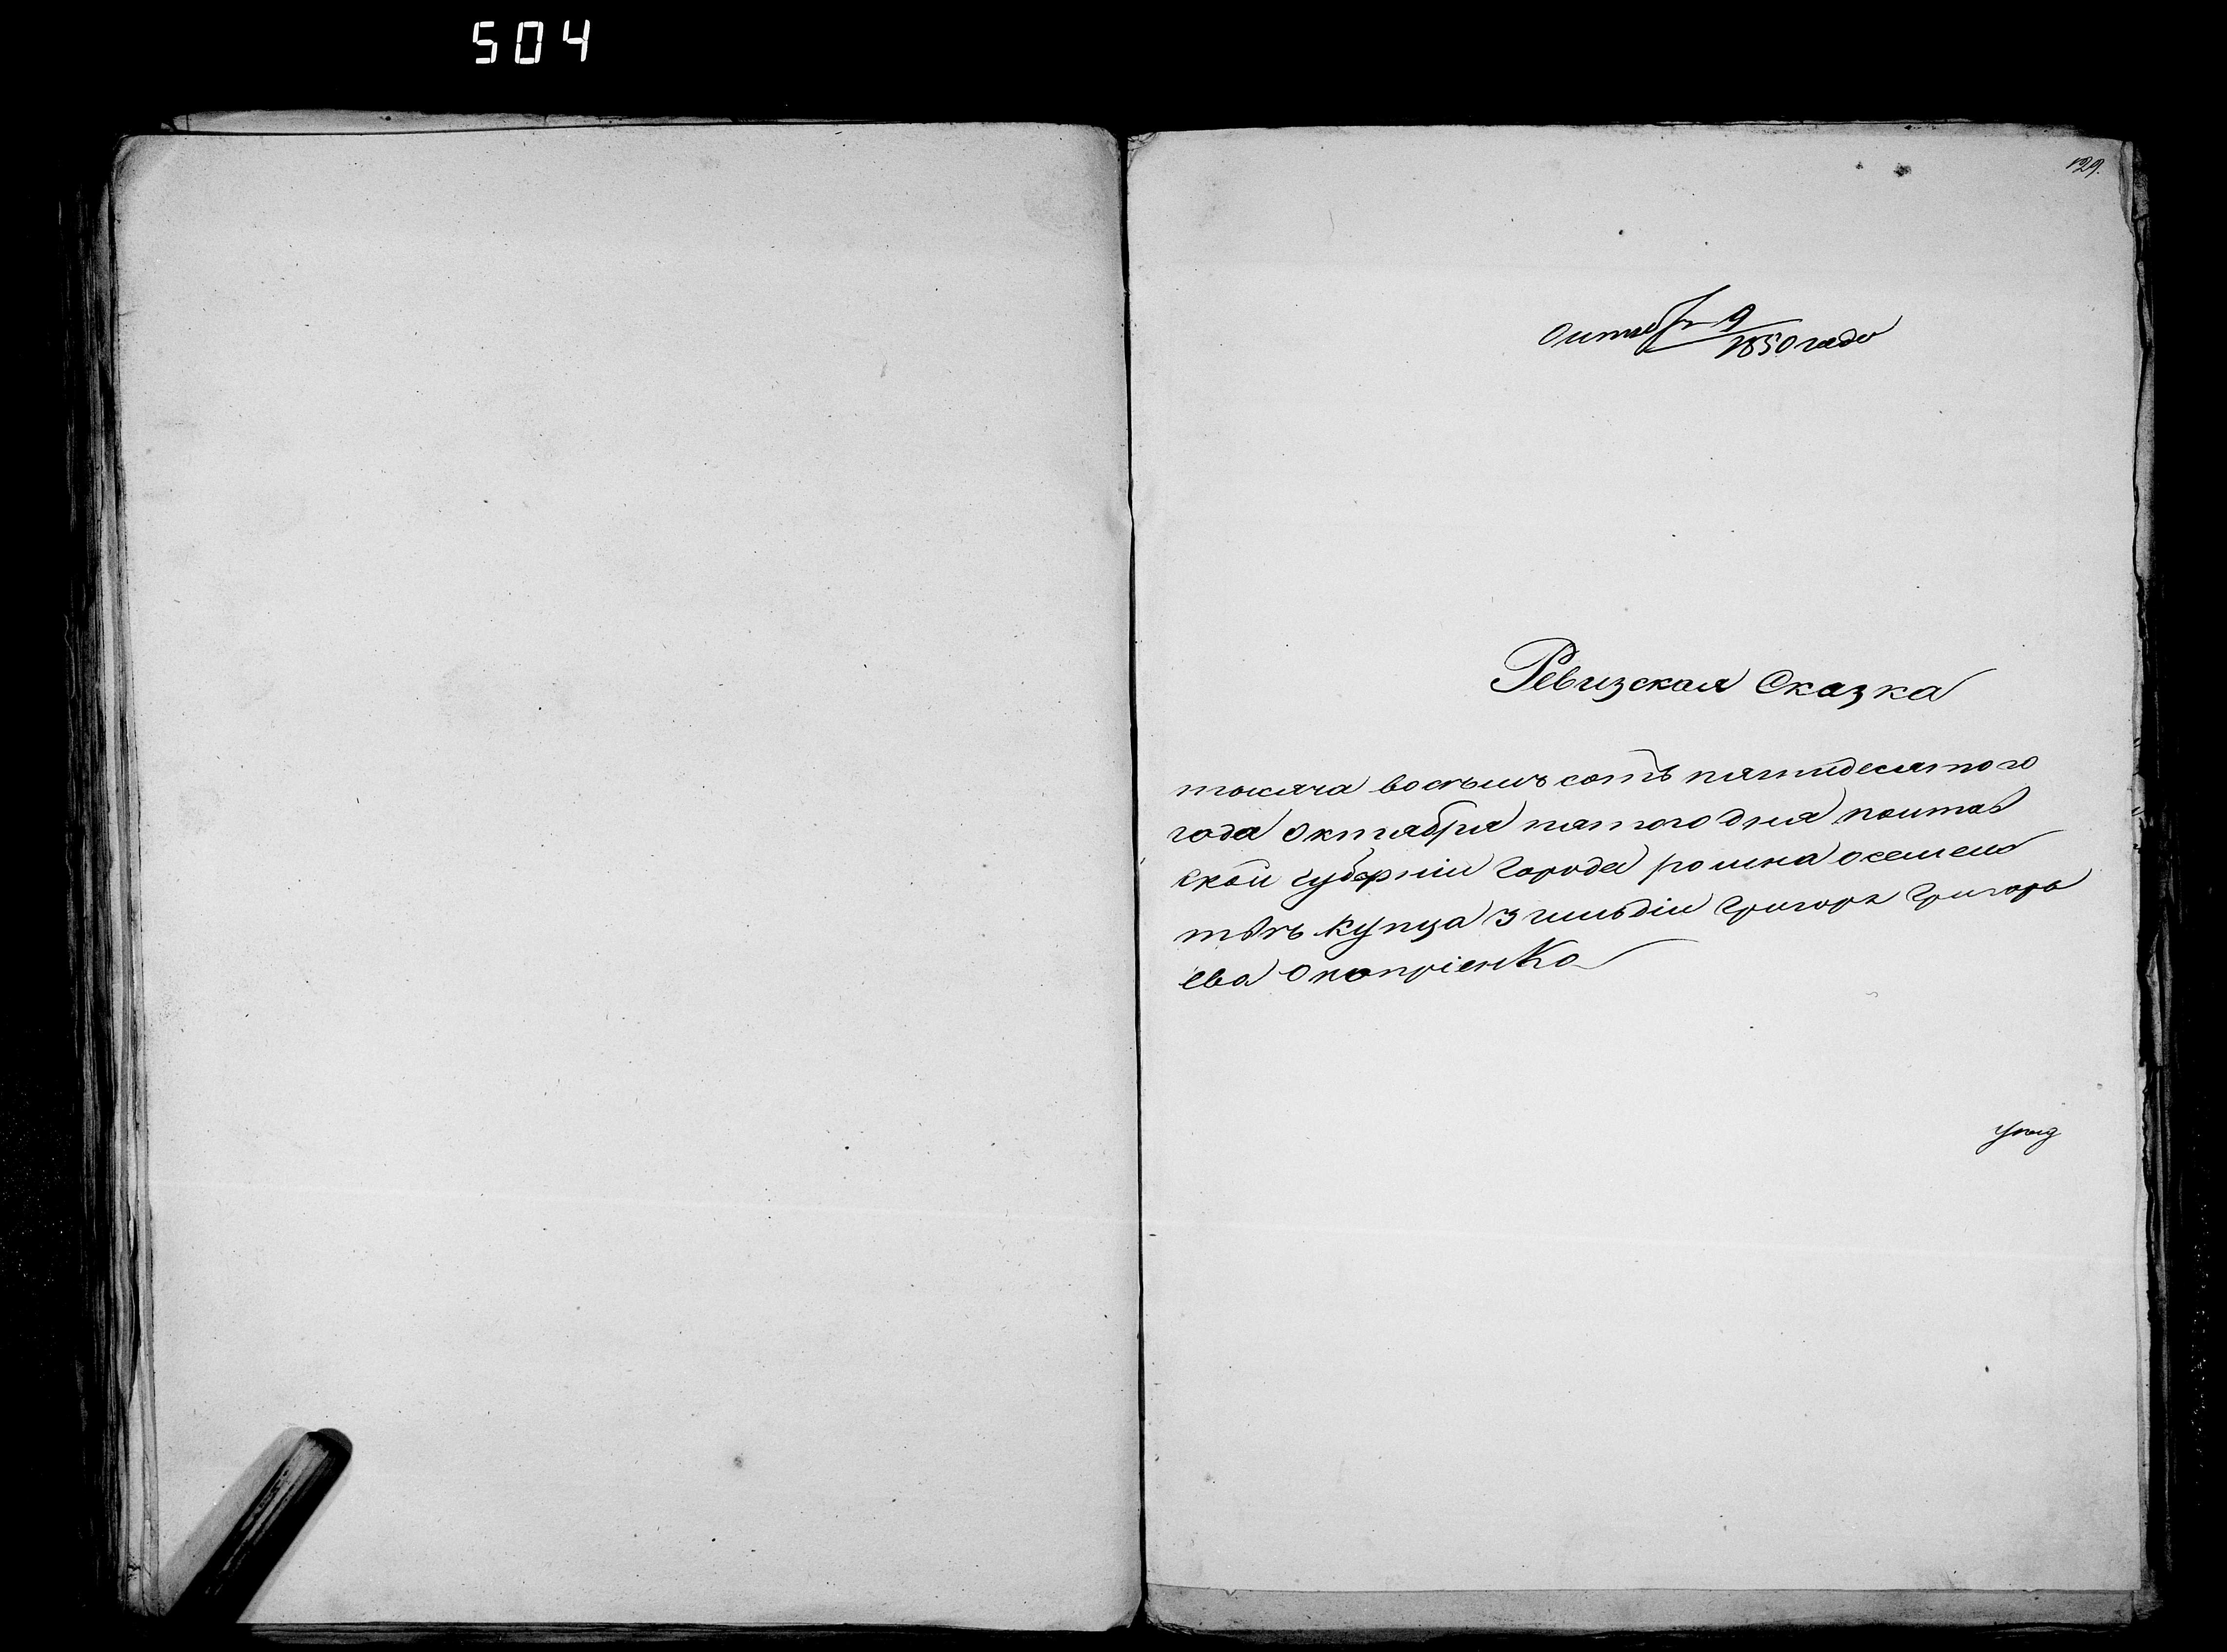 504
129.
Октября 9
1850 года
Ревизская Сказка
тысяча восъмъ сотъ пятидесятого
года Октября пятого дня полтав
ской губерніи города ромна о семей
купца 3 гильдіи григоря григорь
ева Оноприенко